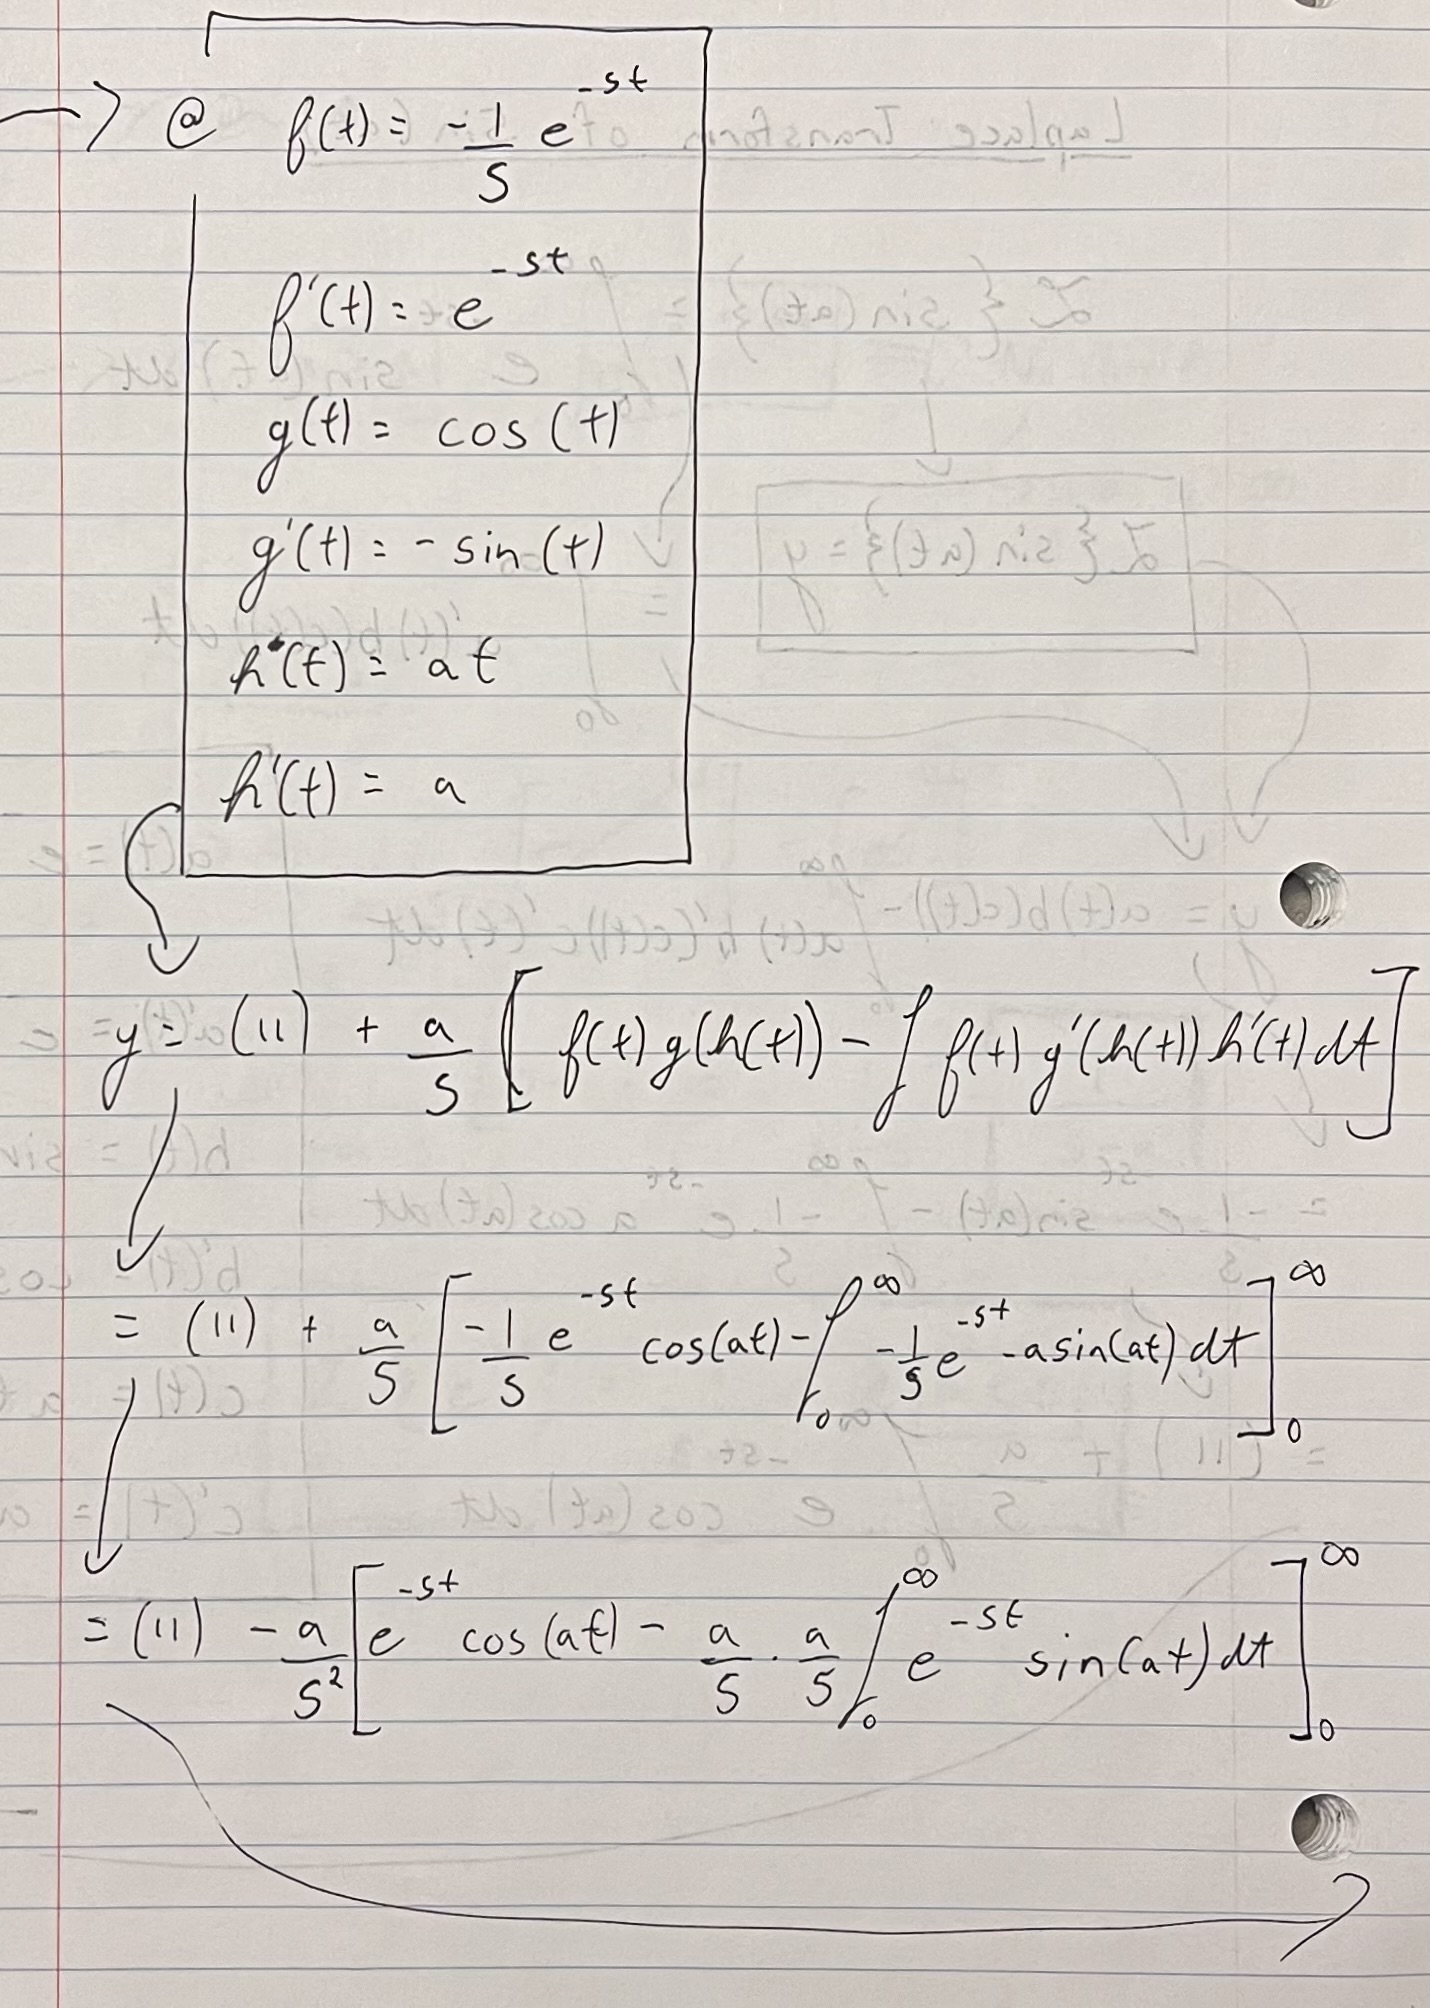 → @ f(t) = -1/s e^{-st}
f'(t) = e^{-st}
g(t) = cos(t)
g'(t) = -sin(t)
h(t) = at
h'(t) = a
= y = (11) + a/s [ f(t) g(h(t)) - ∫ f(t) g'(h(t)) h'(t) dt ]
= (11) + a/s [ -1/s e^{-st} cos(at) - ∫_0^∞ -1/s e^{-st} -a sin(at) dt ]_0^∞
= (11) - a/s^2 [ e^{-st} cos(at) - a/s · a/s ∫_0^∞ e^{-st} sin(at) dt ]_0^∞